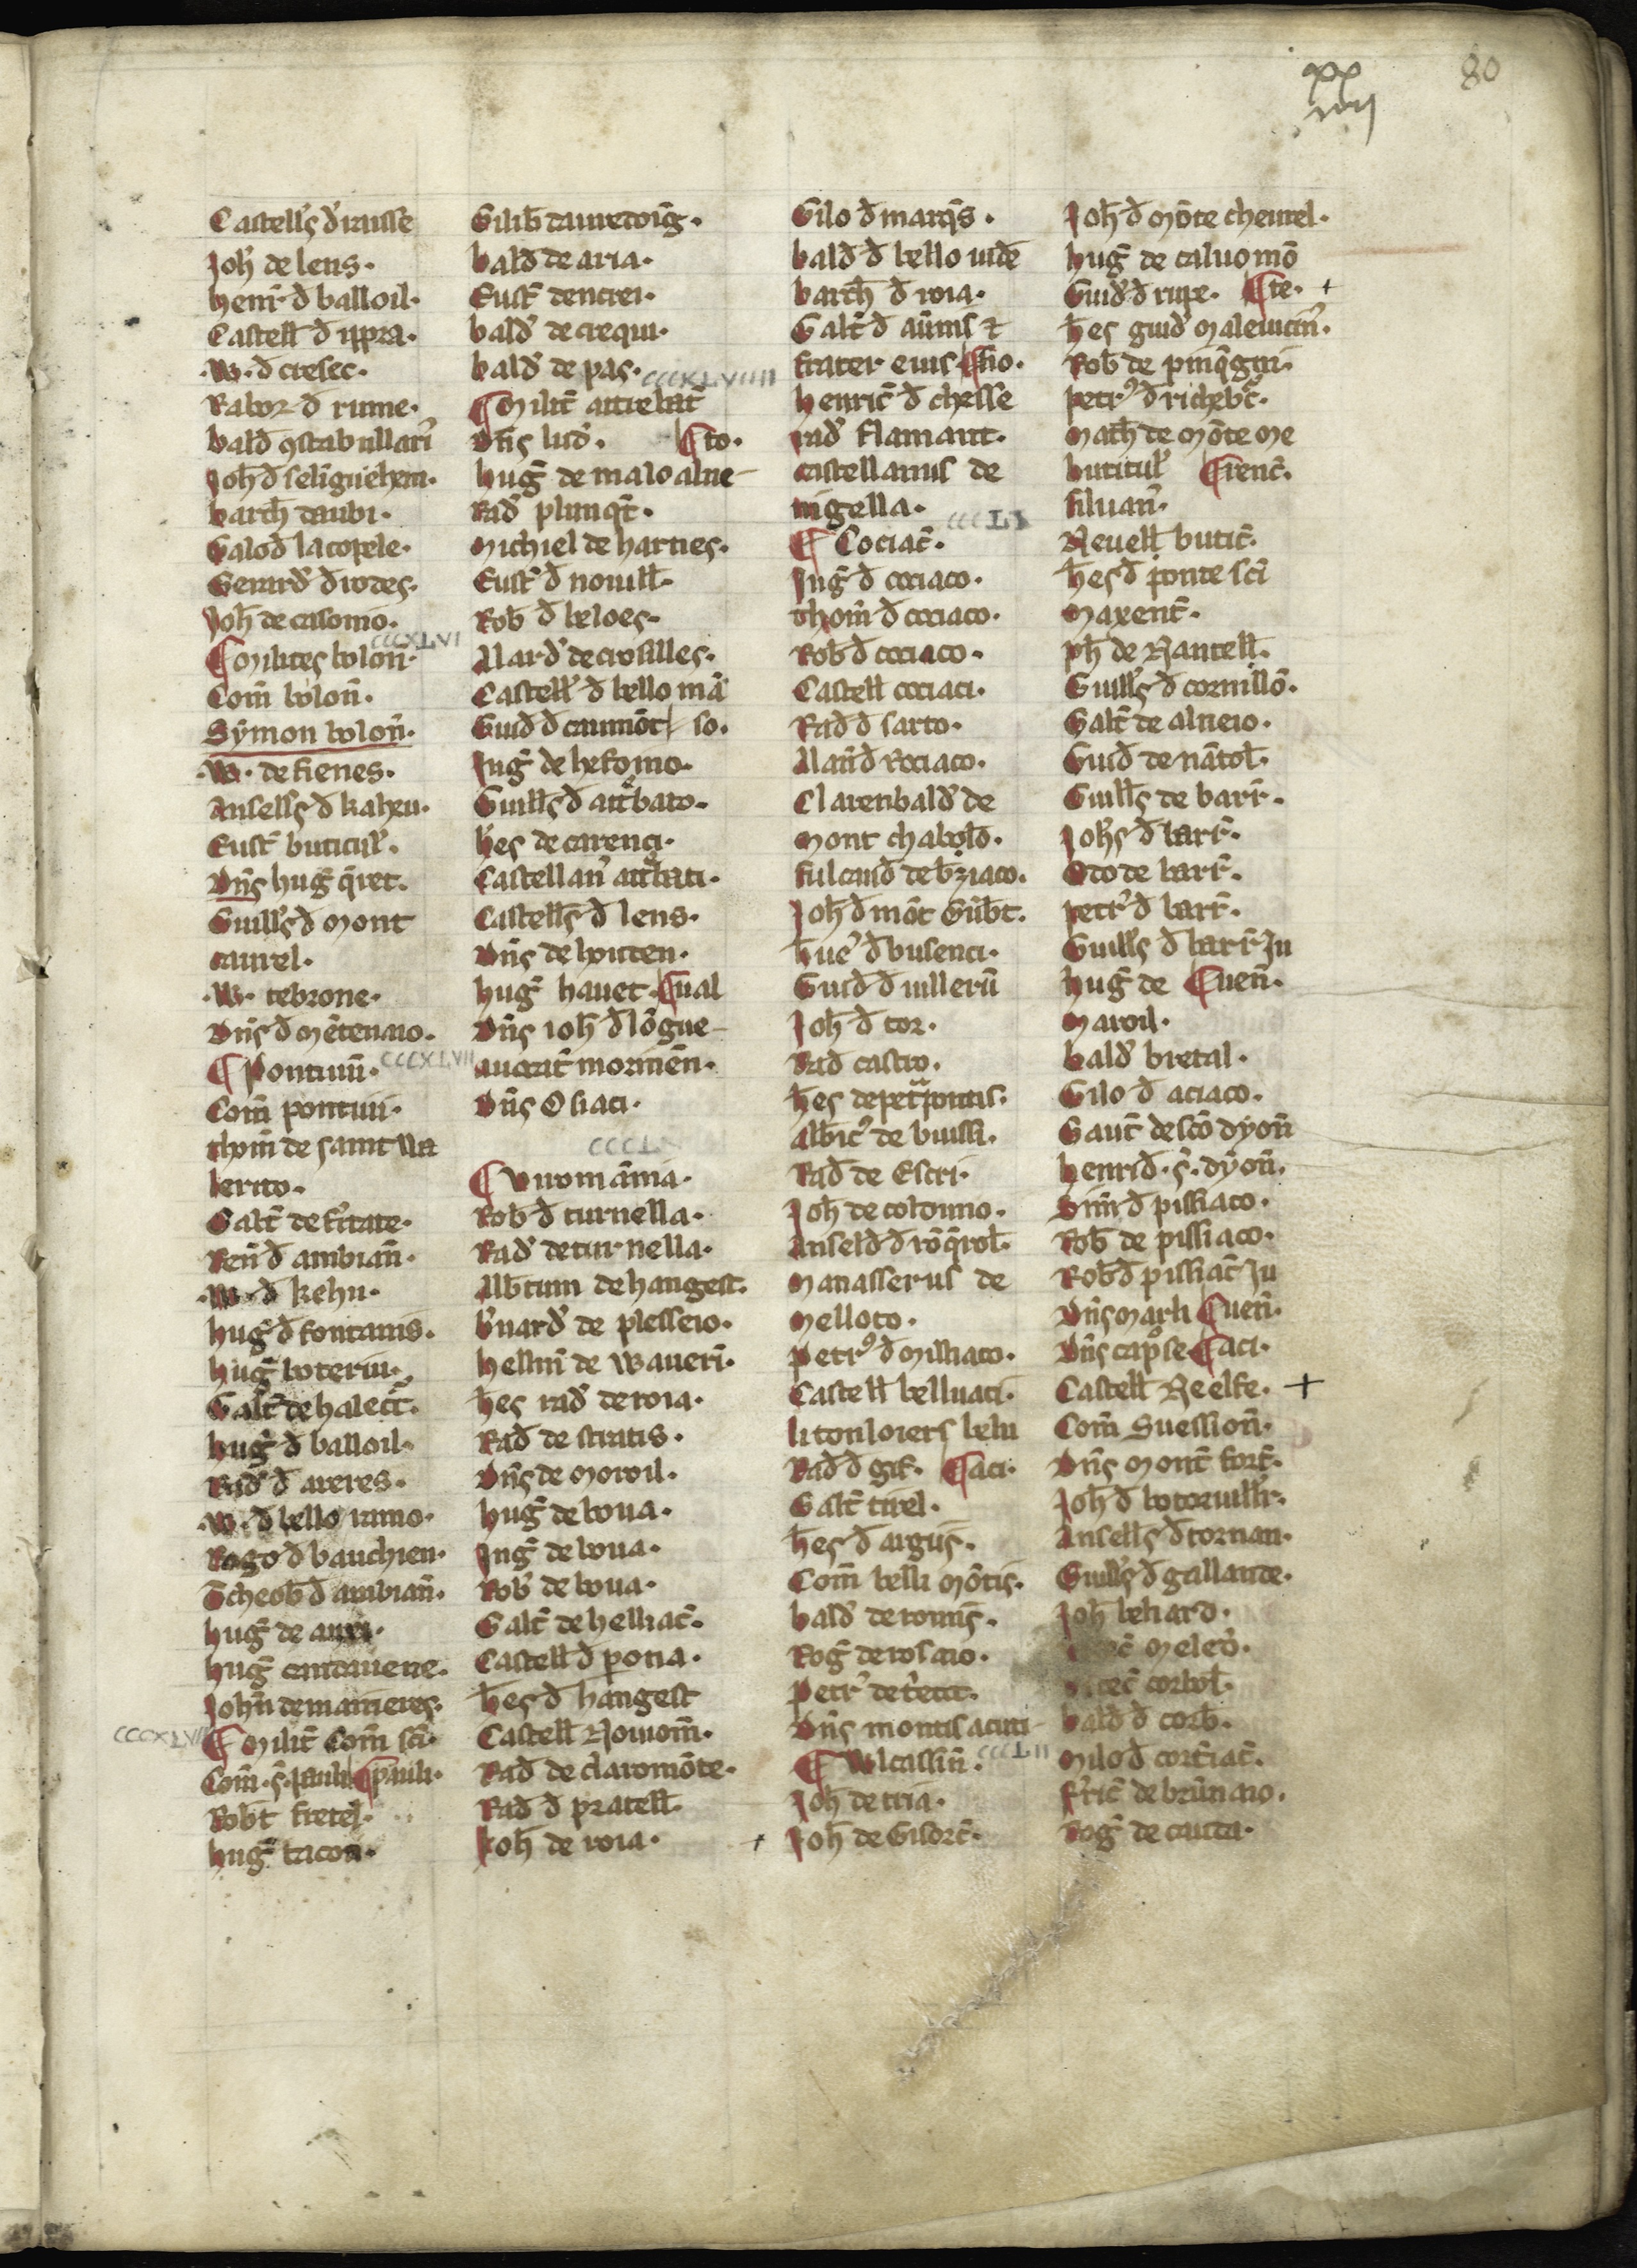 80
xx
iiii
Castell's d' raisse
Joh' de lens.
Henr' d' balloil.
Castell' d' ippra.
.W. d' cresec.
Rabor d' rume.
bald' 9stabullari'
Joh' d' selinguehem.
barth' daubi.
Galo d' lacopele.
Gerard' d' rodes.
Joh' de casomo.
CCCXLVI
¶ Milites bolon'.
Com' bolon'.
Symon bolon'.
.W. de fienes.
Ansell's d' kaheu.
Eust' buticul'.
Dn's hug' q'ret.
Guill's d' mont
caurel.
.W. tebrone.
Dn's d' me'tenaio.
CCCXLVII
¶ Pontiuu'.
Com' pontiui.
Thom' de saint wa
lerico.
Galt' de f'itate.
Ren' d' ambian'.
.W. d' kehu.
hug' d' fontanis.
hug' boteriu.
Galt' de halect'.
hug' d' balloil.
Rad' d' areres.
.W. d' bello ramo.
Rogo d' bauchien.
Theob' d' ambian'.
hug' de auxi.
hug' camdauene.
Joh'n demanieres.
CCCXLVIII
¶ Milit' Com' sci'.
Com'. s'. pauli ¶ pauli.
Rob't fretel.
hug' tacon.
Gilib' dauredoing'.
bald' de aria.
Eust' dencrei.
bald' de crequi.
bald' de pas.
CCCXLVIIII
¶ Milit' attrebat'
Dn's lud'. ¶ to.
hug' de malo alne
Rad' plunq't.
Michiel de harnes.
Eust' d' nouill'.
Rob' d' beloes.
Alard' de croisilles.
Castell' d' bello ma'
Guid' d' caumo't so.
Ing' de hefomo.
Guill's d' att'bato.
h'es de carenci.
Castellan' att'bati.
Castell's d' lens.
Dn's de houten.
hug' hauet. ¶ ual
Dn's ioh' d' lo'gue
auocat' morine'n.
Dn's Oliaci.
CCCL
¶ Viroma'nia.
Rob' d' turnella.
Rad' de turnella.
Alb'tum de hangest.
b'nard' de plesseio.
hellin' de waueri'.
h'es rad' de roia.
Rad' de stratis.
Dn's de moroil.
hug' de boua.
Ing' de boua.
Rob' de boua.
Galt' de helliac'.
Castell' d' perona.
h'es d' hangest
Castell' Nouiom'.
Rad' de claromo'te.
Rad' d' pratell'.
Joh' de roia.
Gilo d' marq's.
bald' d' bello uide'
barth' d' roia.
Galt' d' auenis 7
frater eius ¶ no.
henric' d' chelle
rad' flamant.
castellanus de
nigella.
CCCLI
¶ Cociac'.
Ing' d' cociaco.
Thom' d' cociaco.
Rob' d' cociaco.
Castell' cociaci.
Rad' d' sarto.
Alan' d' Rociaco.
Clarenbald' de
Mont chabolo'.
fulcaud' de b'ziaco.
Joh' d' mo't Gub't.
hue' d' busenci.
Guid' d' uilleru'
Joh' d' tor.
Rad' castro.
h'es depet'pontis.
alb'ic' de buissi.
Rad' de Escri.
Joh' de colduno.
Anseld' d' ro'q'rol'.
Manasserus de
Melloto.
Petr9 d' milliaco.
Castell' belluaci.
li tonloiers belu
Rad' d' gif. ¶ aci.
Galt' tirel.
h'es d' argus'.
Com' belli mo'tis.
bald' de romis'.
Rog' de rosaio.
Petr' de t'ect.
Dn's montis acuti
CCCLII
¶ Wlcassin'.
Joh' de tria.
Joh' de Gisorc'.
Joh' d' mo'te cheurel.
hug' de caluo mo'
Guid' d' rupe. ¶ te. +
h'es guid' maleuicin'.
Rob' de pinq'gni.
Petr9 d' richebc'.
Math' de mo'te me
buticul' ¶ renc'.
siluan'.
Neuell' butic'.
h'es d' ponte sci'
Maxent'.
ph' de Nantell'.
Guill's d' cornillo'.
Galt' de alneio.
Guid' de na'tol'.
Guill's de barr'.
Joh's d' barr'.
Odo de barr'.
Petr' d' barr'.
Guill's d' barr' Ju
hug' de ¶ uen'.
Maroil.
bald' bretal.
Gilo d' aciaco.
Gaut' de sc'o dyon'
henri d'. s'. dyon'.
Sim' d' pissiaco.
Rob' de pissiaco.
Rob' d' pissiac' Ju
Dn's marli ¶ uen'.
Dn's capose ¶ aci.
Castell' Neelfe. +
Com' Suession'.
Dn's mont' fort'.
Joh' d' botoruill'r.
Ansell's d' tornan.
Guill's d' gallande.
Joh' behard.
c' meled'.
ec' corbol'.
bald' d' corb'.
Milo d' cort'iac'.
f'ric' de brunaio.
Rog' de cauda.